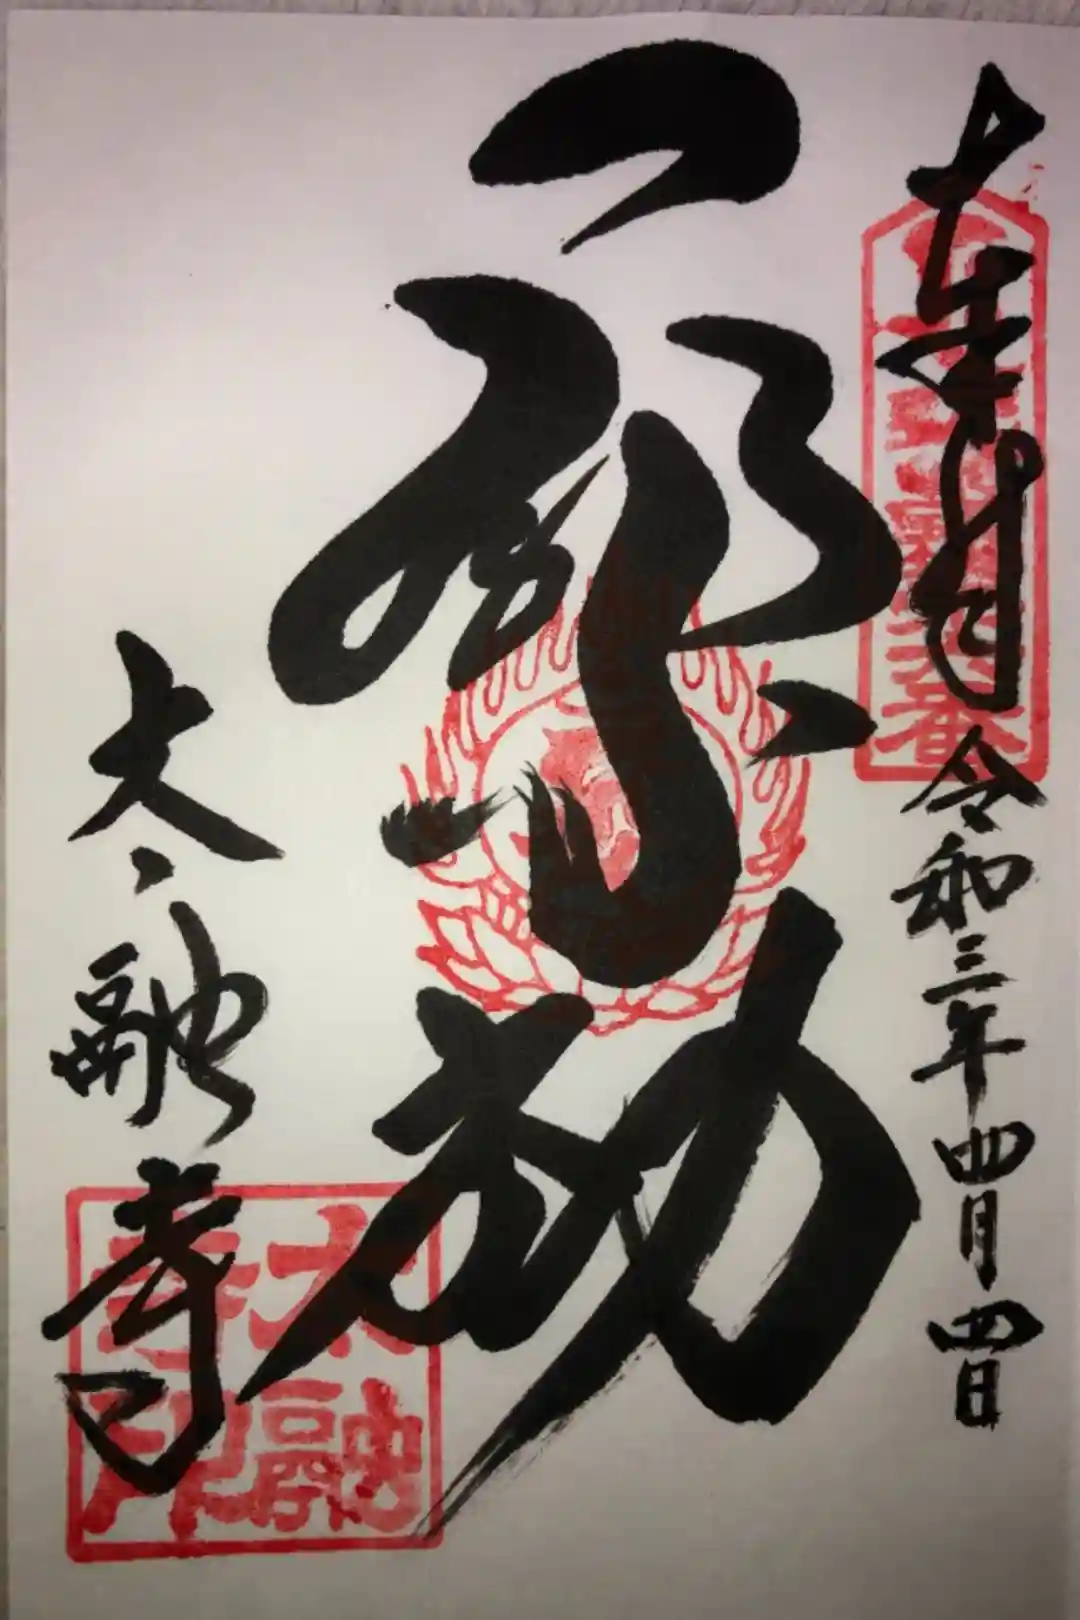 奉拝
令和三年四月四日
一願不動
太融寺
太融
寺印